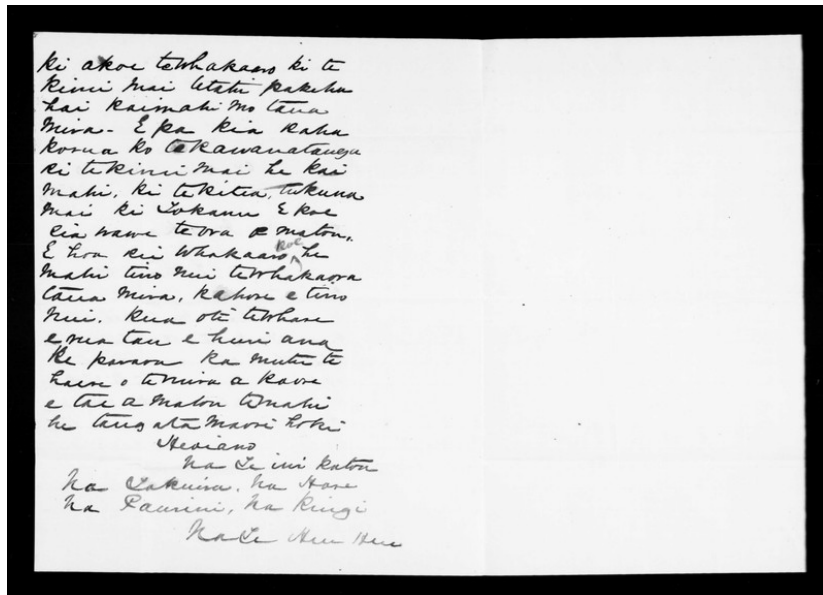 ki akoe te whakaaro ki te
kimi mai tetahi pakeha
hai kaimahi mo taua
mira - E pa kia kaha
korua ko te kawanatanga
ki te kimi mai he kai
mahi, ki te kitea, tukuna
mai ki Tokanu E koe
kia wawe te ora o matou,
E hoa kia whakaaro koe he
mahi tino nui te whakaora
taua mira, kahore e tino
nui. kua oti te whare
e rua tau e huri ana
he paraoa ka mutu te
haere o te mira a kaore
e tae a matou te mahi
he tangata maori hoki
Heoiano
Na Te iwi katou
Na Takuira, Na Hare
Na Paurini, Na Kingi
Na Te Heu Heu